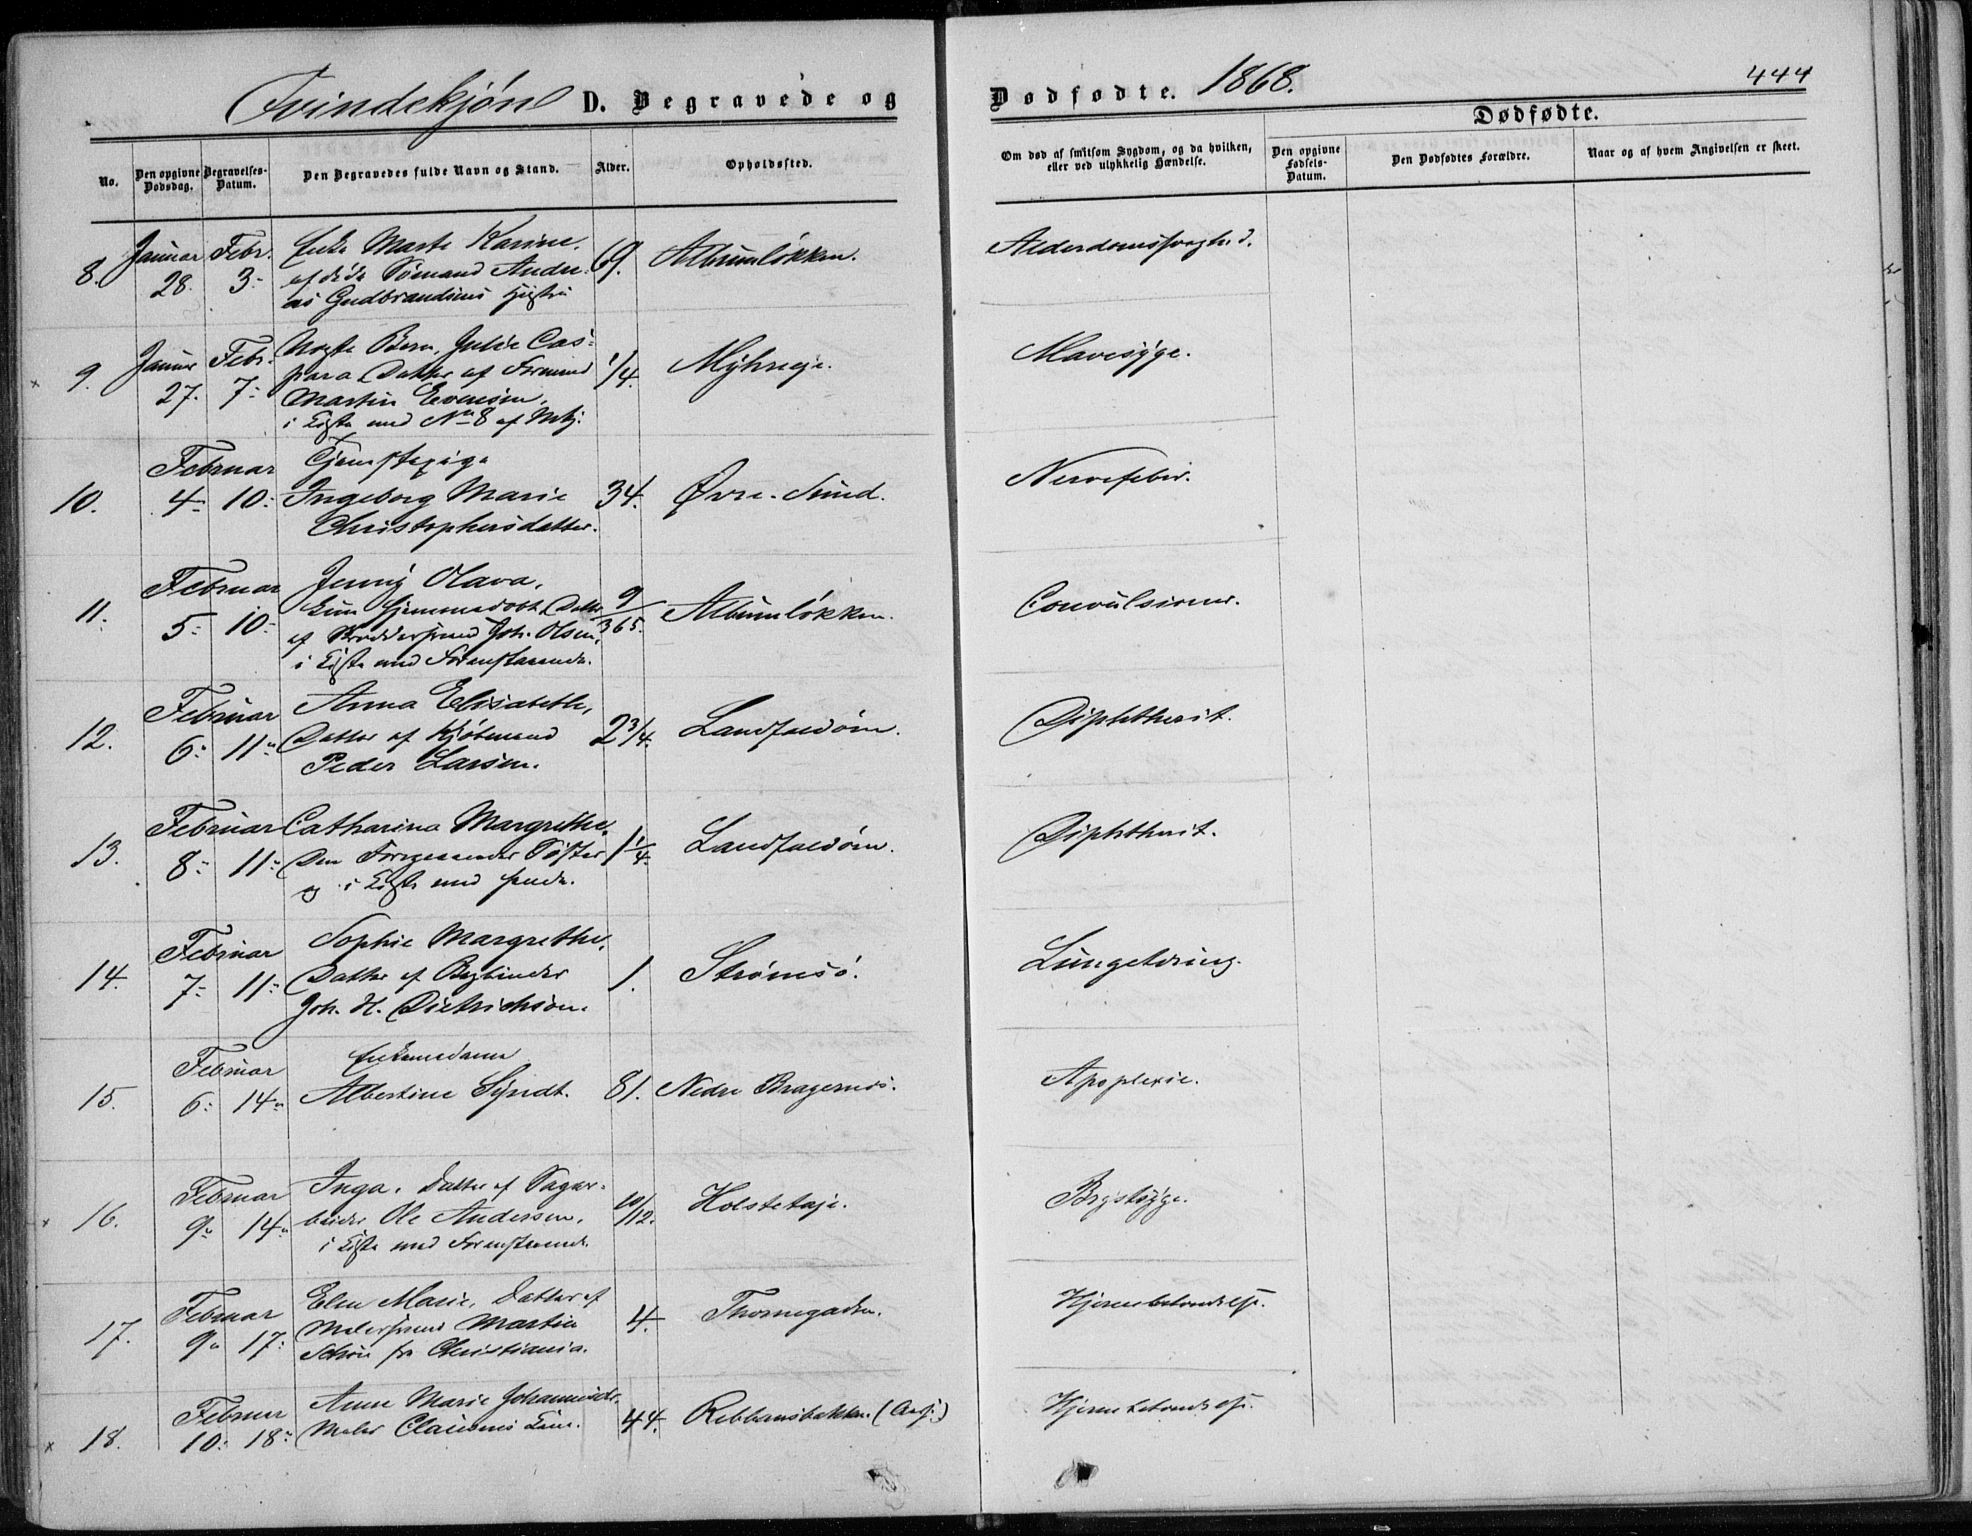 Qvindekjøn D. Begravede og
Dødfødte. 1868. 444
Dødfødte.
No. Den opgivne Dødsdag. Begravelses-Datum. Den Begravedes fulde Navn og Stand. Alder. Opholdssted.
Om død af smitsom Sygdom, og da hvilken, eller ved ulykkelig Hændelse. Den opgivne Fødsels-Datum. Den Dødfødtes Forældre. Naar og af hvem Angivelsen er skeet.
8. Januar 28. Febr. 3. Enke Marte Karine. 69. Albumløkken. Alderdomssvaghed.
af døde Sømand Andre-
as Gudbrandsens
9. Januar 27. Febr. 7. Nøgte Barn, Julie Cas- 1/4. Myhreje. Mavesyge.
para Datter af Formand
Martin Evensen,
i Kiste med No 8 af Mkj.
10. Februar 4. 10. Tjenestepige 34. Øvre-Sund. Nervefeber.
Ingeborg Marie
Christophersdatter.
11. Februar 5. 10. Jenny Olava, 9/365. Albumløkken. Convulsioner.
kun hjemmedøbt Datter
af Skræddersvend Joh. Olsen,
i Kiste med Foranstaaende.
12. Februar 6. 11. Anna Elisabeth, 2 3/4. Landfaldøen. Diphtherit.
Datter af Kjøbmand
Peder Larsen.
13. Februar 8. 11. Catharina Margrethe, 1 1/4. Landfaldøen. Diphtherit.
Den Foregaaendes Søster
og i Kiste med hende.
14. Februar 7. 11. Sophie Margrethe, 1. Strømsø. Lungetæring.
Datter af Bogbinder
Joh. H. Dietrichson.
15. Februar 6. 14. Enkemadame 81. Nedre Bragernes. Apoplexie.
Albertine Syndt.
16. Februar 9. 14. Inga, Datter af Sagar- 10/12. Holstetaje. Brystsyge.
beider Ole Andersen,
i Kiste med Foranstaaende.
17. Februar 9. 17. Elen Marie, Datter af 4. Thornegaden. Hjernebetændelse.
Malersvend Martin
Schøn fra Christiania.
18. Februar 10. 18. Anne Marie Johannesdr. 44. Rebbansbakken. Hjernebetændelse.
Maler Clausens Enke.